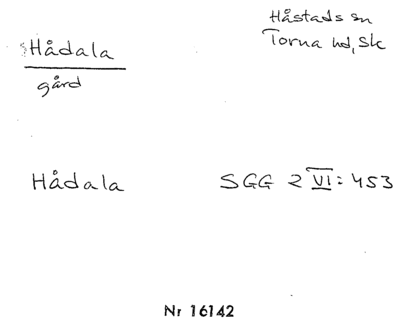 Håstads sn
Hådala
Torna hd, Sk
gård
Hådala SGG 2 VI: 453
Nr 16142